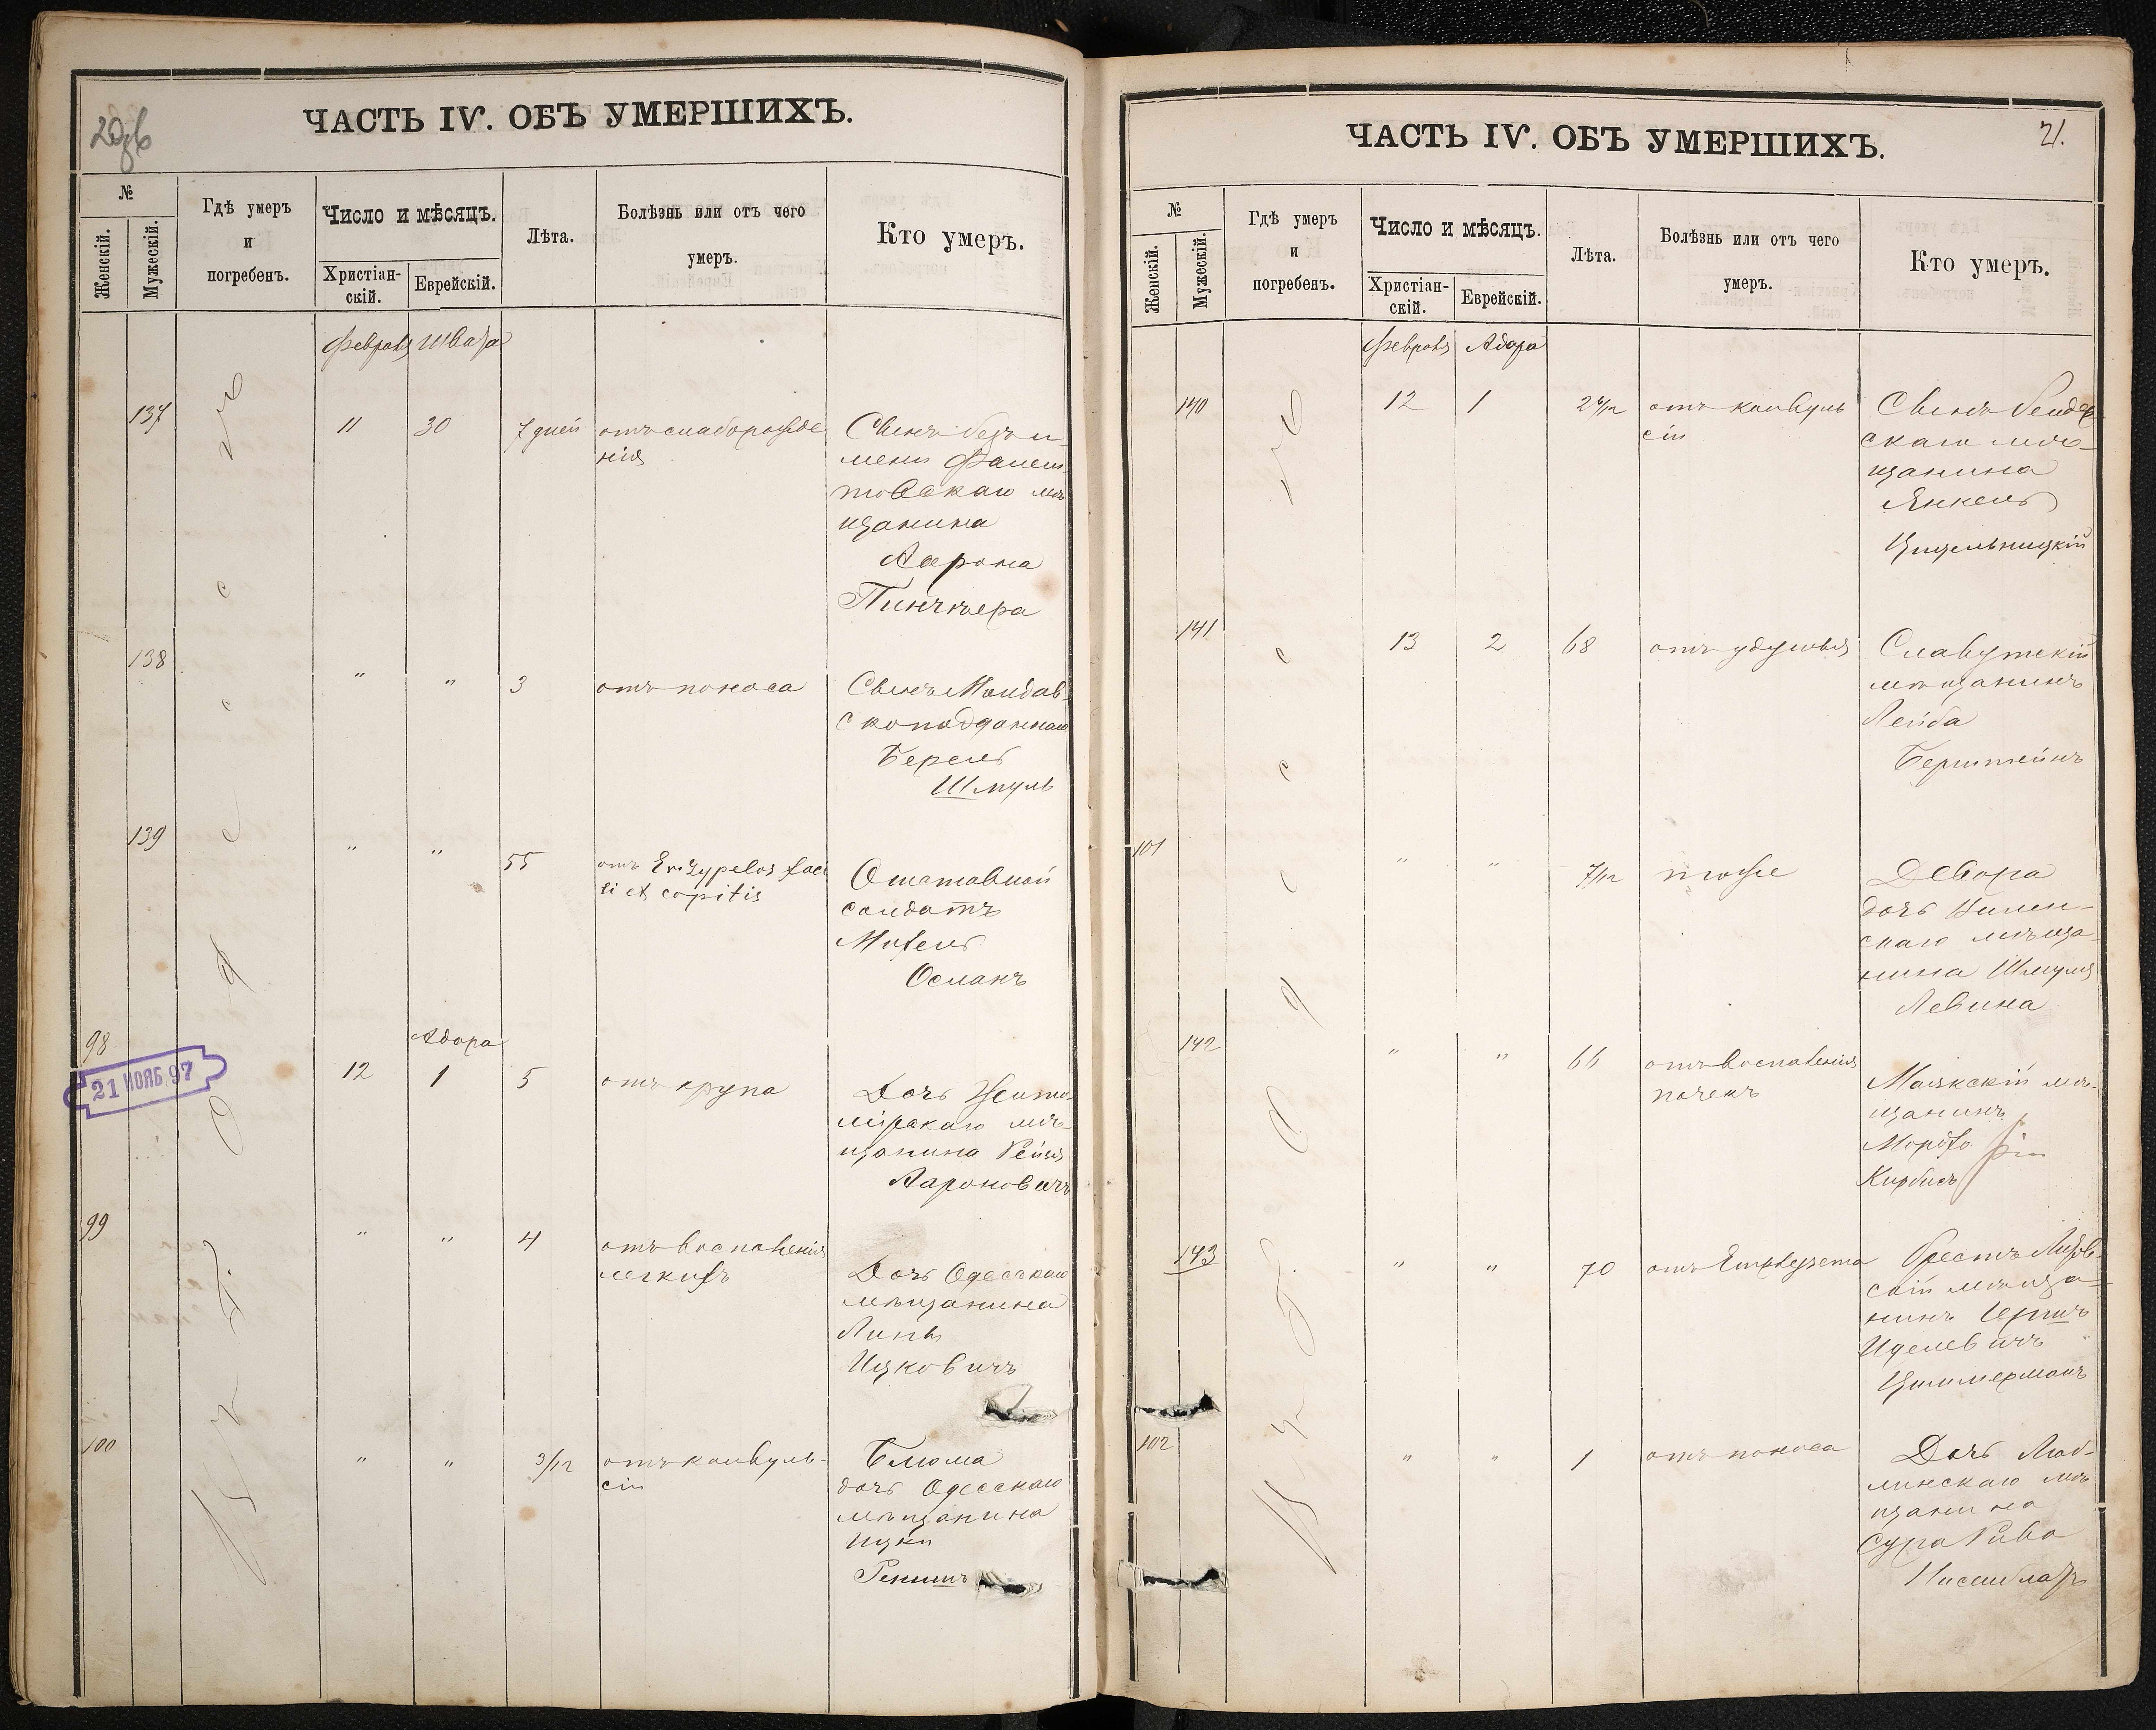 20об
ЧАСТЬ IV. ОБЪ УМЕРШИХЪ.
№
Женскій.
Мужескій.
Гдѣ умеръ
и
погребенъ.
Число и мѣсяцъ.
Христіан-
скій.
Еврейскій.
Лѣта.
Болѣзнь или отъ чего
умеръ.
Кто умеръ.
Февраля Швата
137 11 30 7 дней отъ слаборожде
нія
Сынъ безъ и-
мени
мѣ
щанина
Аарона
Пинчнера
138 " " 3 отъ поноса
Сынъ Молдав-
скоподданнаго
Берель
Шмуль
139 " " 55 отъ Erizypelos faci
ei et capitis
Отставной
солдатъ
Мотель
Османъ
Адара
98 12 1 5 отъ крупа
21 НОЯБ. 97
Дочь Жито-
мірскаго мѣ-
щанина Рейзя
Аароновичъ
99 " " 4 отъ воспаленія
легкихъ
Дочь Одесскаго
мѣщанина
Ицковичъ
100 " " 3/12 отъ конвуль-
сіи
Блюма
дочь Одесскаго
мѣщанина
Ицки
въ г. Одессѣ
21.
ЧАСТЬ IV. ОБЪ УМЕРШИХЪ.
№
Женскій.
Мужескій.
Гдѣ умеръ
и
погребенъ.
Число и мѣсяцъ.
Христіан-
скій.
Еврейскій.
Лѣта.
Болѣзнь или отъ чего
умеръ.
Кто умеръ.
Февраля Адара
140 12 1 отъ конвуль
сіи
Сынъ Бендер-
скаго мѣ-
щанина
Янкель
141 13 2 68 отъ удушья
Славутскій
мѣщанинъ
Лейба
Берштейнъ
101 " " 7/12 тоже
Двора
дочь Вилен-
скаго мѣща-
нина Шмуля
Левина
142 " " 66 отъ воспаленія
почекъ
Маякскій мѣ-
щанинъ
Кирбисъ
143 " " 70 отъ Emphysema
Брестъ Литов-
скій мѣща-
нинъ Гершъ
Иделевичъ
Циммерманъ
102 " " 1 отъ поноса
Дочь Люб-
линскаго мѣ
щанина
Сура Рива
въ г. Одессѣ